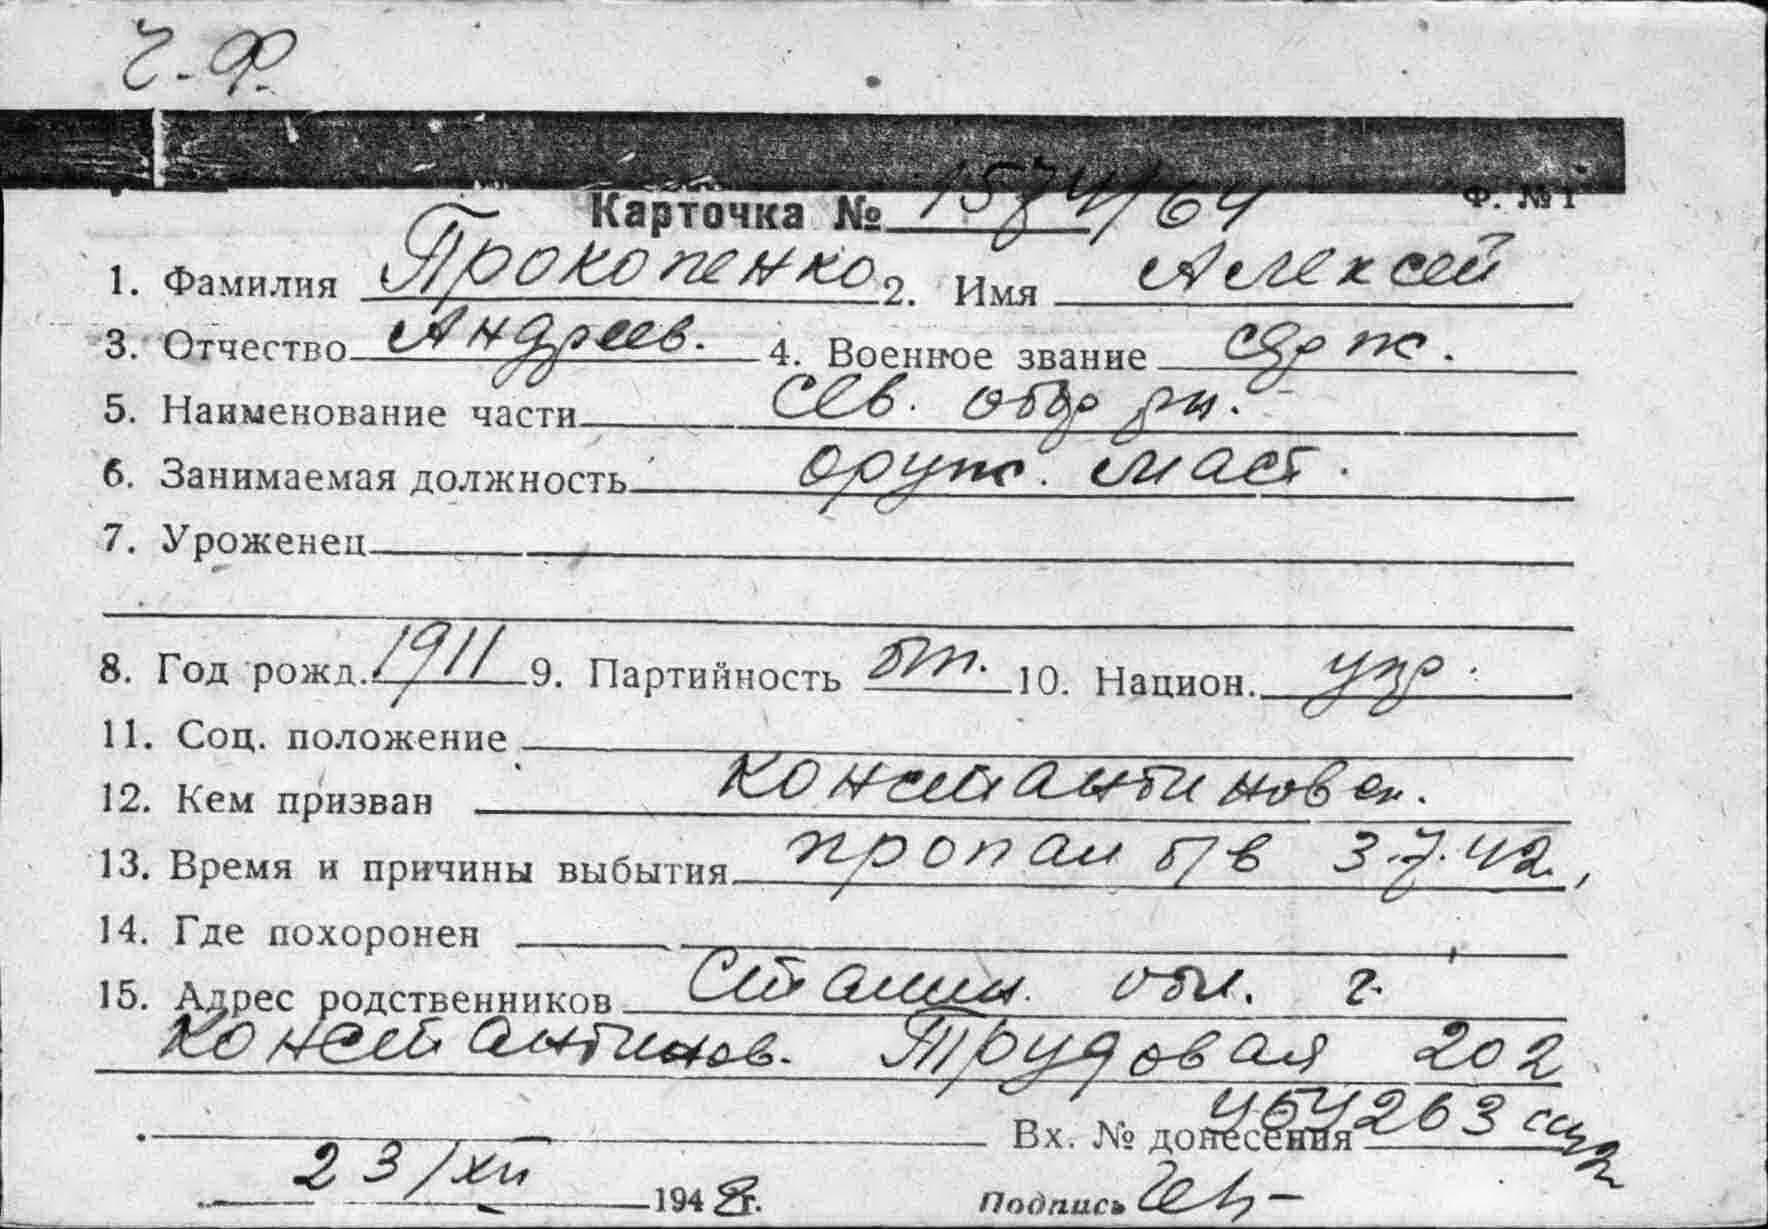 Ч.Ф.
Карточка № 1574/64 Ф. №1
1. Фамилия Прокопенко 2. Имя Алексей
3. Отчество Андреев. 4. Военное звание
5. Наименование части Сев. обор
6. Занимаемая должность оруж. маст.
7. Уроженец
8. Год рожд. 1911 9. Партийность бп. 10. Национ. укр.
11. Соц. положение
12. Кем призван Константиновск.
13. Время и причины выбытия пропал б/в 3.7.42.
14. Где похоронен
15. Адрес родственников Сталин. обл. г.
Константинов. Трудовая 202
Вх. № донесения
23/XII 1948г. Подпись